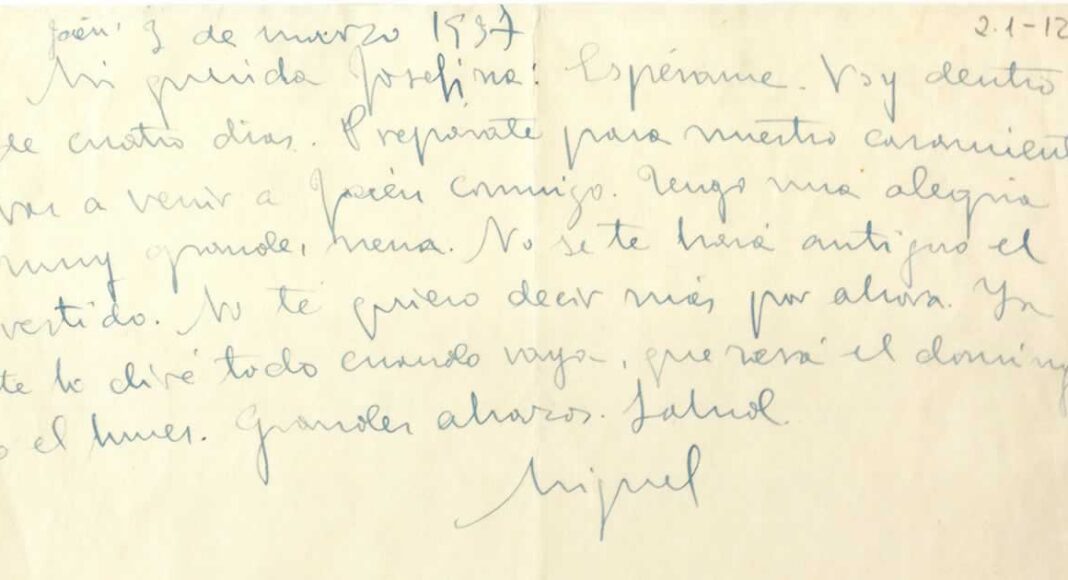 Jaén 3 de marzo 1937
2.1-12
Mi querida Josefina: Espérame. Voy dentro
de cuatro días. Prepárate para nuestro casamient
vas a venir a Jaén conmigo. Tengo una alegría
muy grande, nena. No se te hará antiguo el
vestido. No te quiero decir más por ahora. Ya
te lo diré todo cuando vaya, que será el doming
o el lunes. Grandes abrazos. Salud.
Miguel